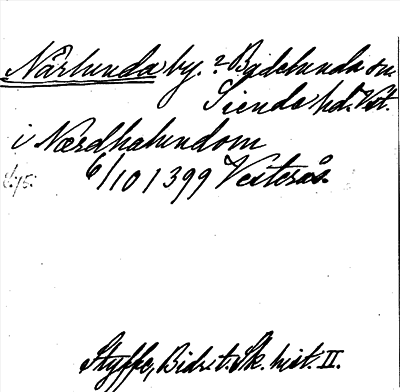 Närlunda by. ? Badelunda sn.
Siende hd. Vst.
i Nærdhalundom
6/10 1399 Vesterås.
Styffe, Bidr. t. Sk. hist. II.